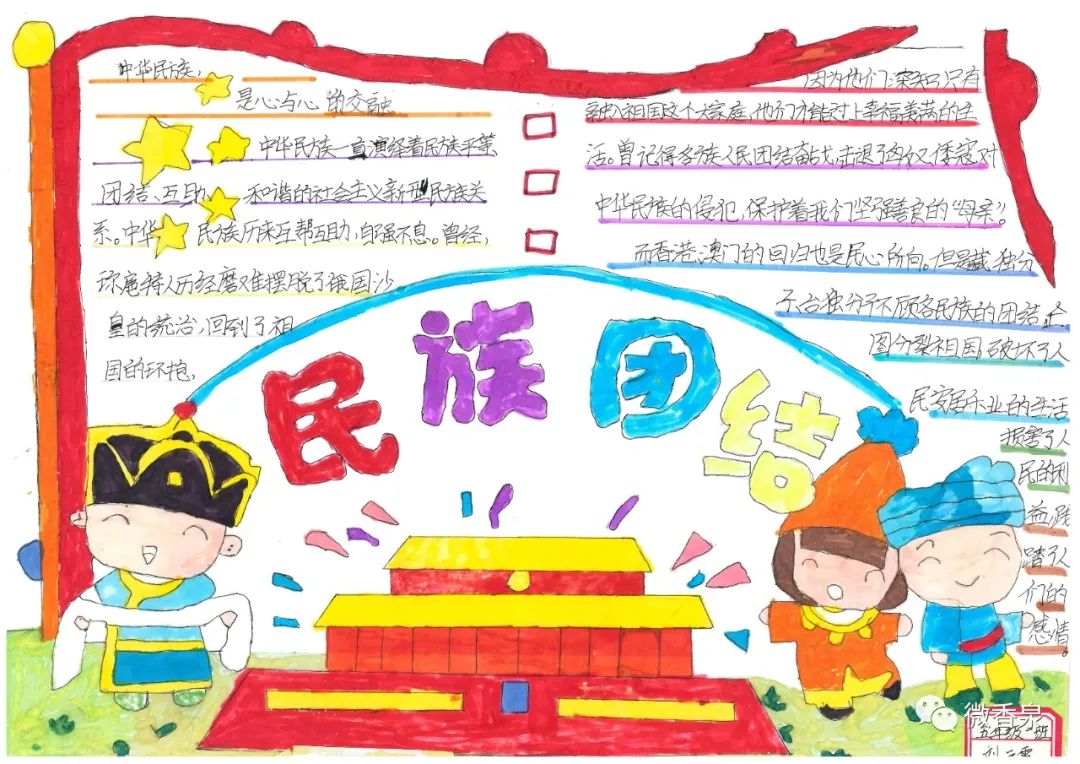 中华民族,
是心与心的交融
中华民族一直演绎着民族平等
团结、互助、和谐的社会主义新型民族关
系。中华民族历来互帮互助,自强不息。曾经,
尔扈特人历经磨难摆脱了俄国沙
皇的统治,回到了祖
国的环抱,
因为他们深知只有
融入祖国这个大家庭,他们才能过上幸福美满的生
活。曾记得各族人民团结奋战,击退了倭寇对
中华民族的侵犯,保护着我们坚强善良的“母亲”。
而香港澳门的回归也是民心所向。但是藏独分
子台独分子不顾各民族的团结企
图分裂祖国,破坏了人
民安居乐业的生活
损害了人
民的利
益,践
踏了人
们的
感情。
民族团结
微香泉
五年级 班
刘